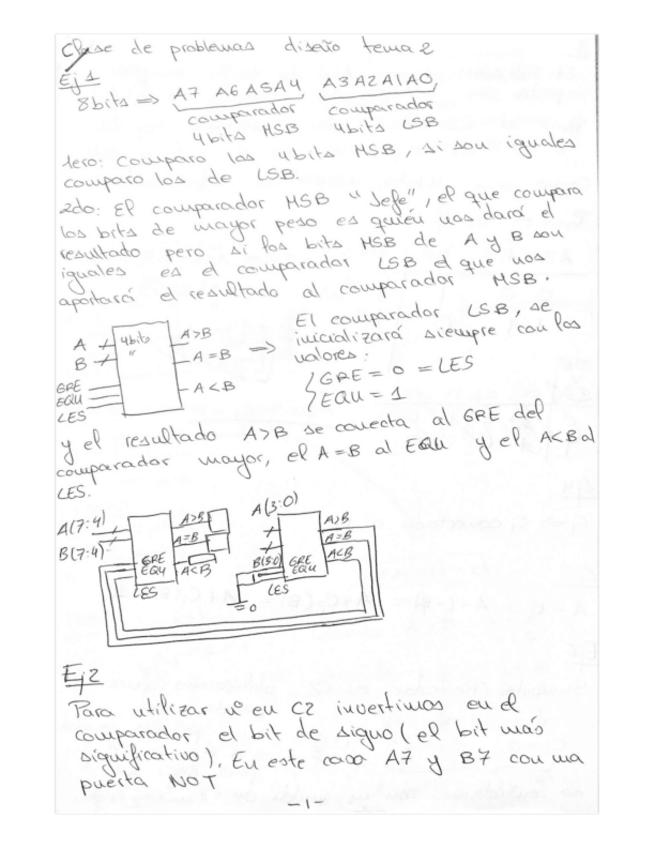 Clase de problemas diseño tema 2
Ej 1
8bits => A7 A6 A5 A4 A3 A2 A1 A0
comparador comparador
4bits MSB 4bits LSB
1ero: Comparo los 4bits MSB, si son iguales
comparo los de LSB.
2do: El comparador MSB "Jefe", el que compara
los bits de mayor peso es quién nos dará el
resultado pero si los bits MSB de A y B son
iguales es el comparador LSB el que nos
aportará el resultado al comparador MSB.
A
B
GRE
EQU
LES
4bits
"
A>B
A=B
A<B
=> El comparador LSB, se
inicializará siempre con los
valores:
GRE = 0 = LES
EQU = 1
y el resultado A>B se conecta al GRE del
comparador mayor, el A=B al EQU y el A<B al
LES.
A(7:4)
B(7:4)
GRE
EQU
LES
A>B
A=B
A<B
A(3:0)
B(3:0)
GRE
EQU
LES
A>B
A=B
A<B
= 0
Ej2
Para utilizar nº en C2 invertimos en el
comparador el bit de signo (el bit más
significativo). En este caso A7 y B7 con una
puerta NOT
-1-